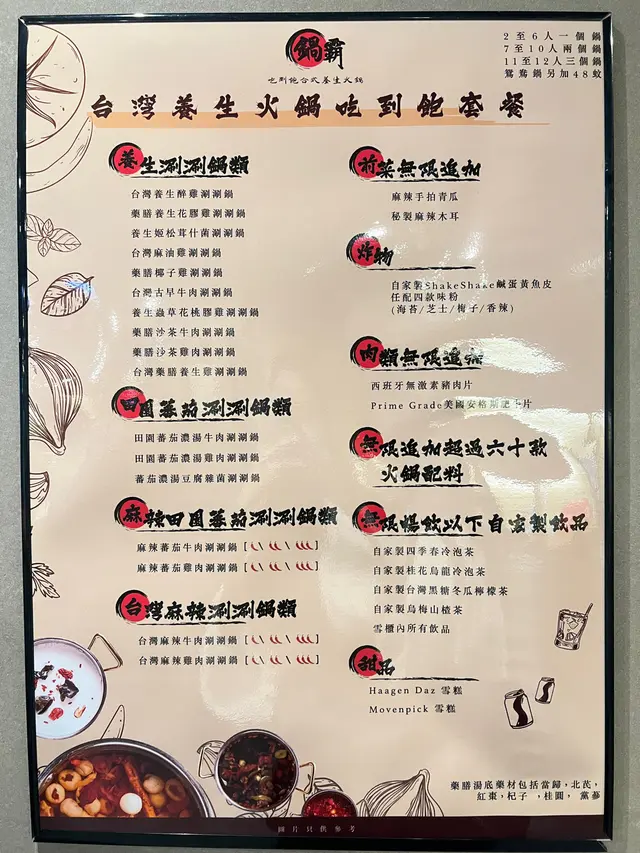 鍋霸
吃到飽台式養生火鍋
2至6人一個鍋
7至10人兩個鍋
11至12人三個鍋
鴛鴦鍋另加48蚊
台灣養生火鍋吃到飽套餐
養生涮涮鍋類
台灣養生醉雞涮涮鍋
藥膳養生花膠雞涮涮鍋
養生姬松茸什菌涮涮鍋
台灣麻油雞涮涮鍋
藥膳椰子雞涮涮鍋
台灣古早牛肉涮涮鍋
養生蟲草花桃膠雞涮涮鍋
藥膳沙茶牛肉涮涮鍋
藥膳沙茶雞肉涮涮鍋
台灣藥膳養生雞涮涮鍋
田園蕃茄涮涮鍋類
田園蕃茄濃湯牛肉涮涮鍋
田園蕃茄濃湯雞肉涮涮鍋
蕃茄濃湯豆腐雜菌涮涮鍋
麻辣田園蕃茄涮涮鍋類
麻辣蕃茄牛肉涮涮鍋
麻辣蕃茄雞肉涮涮鍋
台灣麻辣涮涮鍋類
台灣麻辣牛肉涮涮鍋
台灣麻辣雞肉涮涮鍋
前菜無限追加
麻辣手拍青瓜
秘製麻辣木耳
炸物
自家製ShakeShake鹹蛋黃魚皮
任配四款味粉
(海苔/芝士/梅子/香辣)
肉類無限追加
西班牙無激素豬肉片
Prime Grade美國安格斯肥牛片
無限追加超過六十款
火鍋配料
無限暢飲以下自家製飲品
自家製四季春冷泡茶
自家製桂花烏龍冷泡茶
自家製台灣黑糖冬瓜檸檬茶
自家製烏梅山楂茶
雪櫃內所有飲品
甜品
Haagen Daz 雪糕
Movenpick 雪糕
藥膳湯底藥材包括當歸,北芪,
紅棗,杞子,桂圓,黨蔘
圖片只供參考